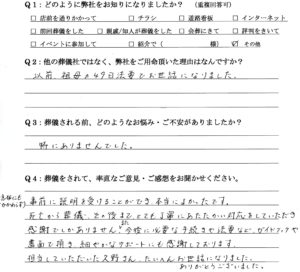 Q1：どのように弊社をお知りになりましたか？（重複回答可）
□ 店前を通りかかって □ チラシ □ 道路看板 □ インターネット
□ 前回葬儀をした □ 親戚/知人が葬儀をした □ 会館にきて □ 評判をきいて
□ イベントに参加して □ 紹介で（ 様） ☑ その他
Q2：他の葬儀社ではなく、弊社をご用命頂いた理由はなんですか？
以前 祖母の49日法要でお世話になりました。
Q3：葬儀される前、どのようなお悩み・ご不安がありましたか？
特にありませんでした。
Q4：葬儀をされて、率直なご意見・ご感想をお聞かせください。
事前に説明を受けることができ、本当によかったです。
死亡から葬儀、その後まで、とても丁寧にあたたかい対応をしていただき
感謝でしかありません。今後に必要な手続きや法要など、ガイドブックや
書面で頂き、細やかなサポートにも感謝しております。
担当していただいた久野さん、たいへんお世話になりました。
ありがとうございました。